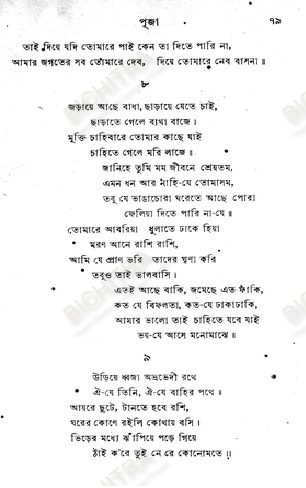 পূজা ৭৯
তাই দিয়ে যদি তোমারে পাই কেন তা দিতে পারি না,
আমার জগতের সব তোমারে দেব, দিয়ে তোমারে নেব বাসনা॥
৮
জড়ায়ে আছে বাধা, ছাড়ায়ে যেতে চাই,
ছাড়াতে গেলে ব্যথা বাজে।
মুক্তি চাহিবারে তোমার কাছে যাই
চাহিতে গেলে মরি লাজে॥
জানিহে তুমি মম জীবনে শ্রেয়তম,
এমন ধন আর নাহি-যে তোমাসম,
তবু যে ভাঙাচোরা ঘরেতে আছে পোরা
ফেলিয়া দিতে পারি না-যে॥
তোমারে আবরিয়া ধুলাতে ঢাকে হিয়া
মরণ আনে রাশি রাশি,
আমি যে প্রাণ ভরি তাদের ঘৃণা করি
তবুও তাই ভালবাসি।
এতই আছে বাকি, জমেছে এত ফাঁকি,
কত যে বিফলতা, কত-যে ঢাকাঢাকি,
আমার ভালো তাই চাহিতে যবে যাই
ভয়-যে আসে মনোমাঝে॥
৯
উড়িয়ে ধ্বজা অভ্রভেদী রথে
ঐ-যে তিনি, ঐ-যে বাহির পথে।
আয়রে ছুটে, টানতে হবে রশি,
ঘরের কোণে রইলি কোথায় বসি।
ভিড়ের মধ্যে ঝাঁপিয়ে পড়ে গিয়ে
ঠাঁই ক'রে তুই নে রে কোনোমতে॥
BICHITRA